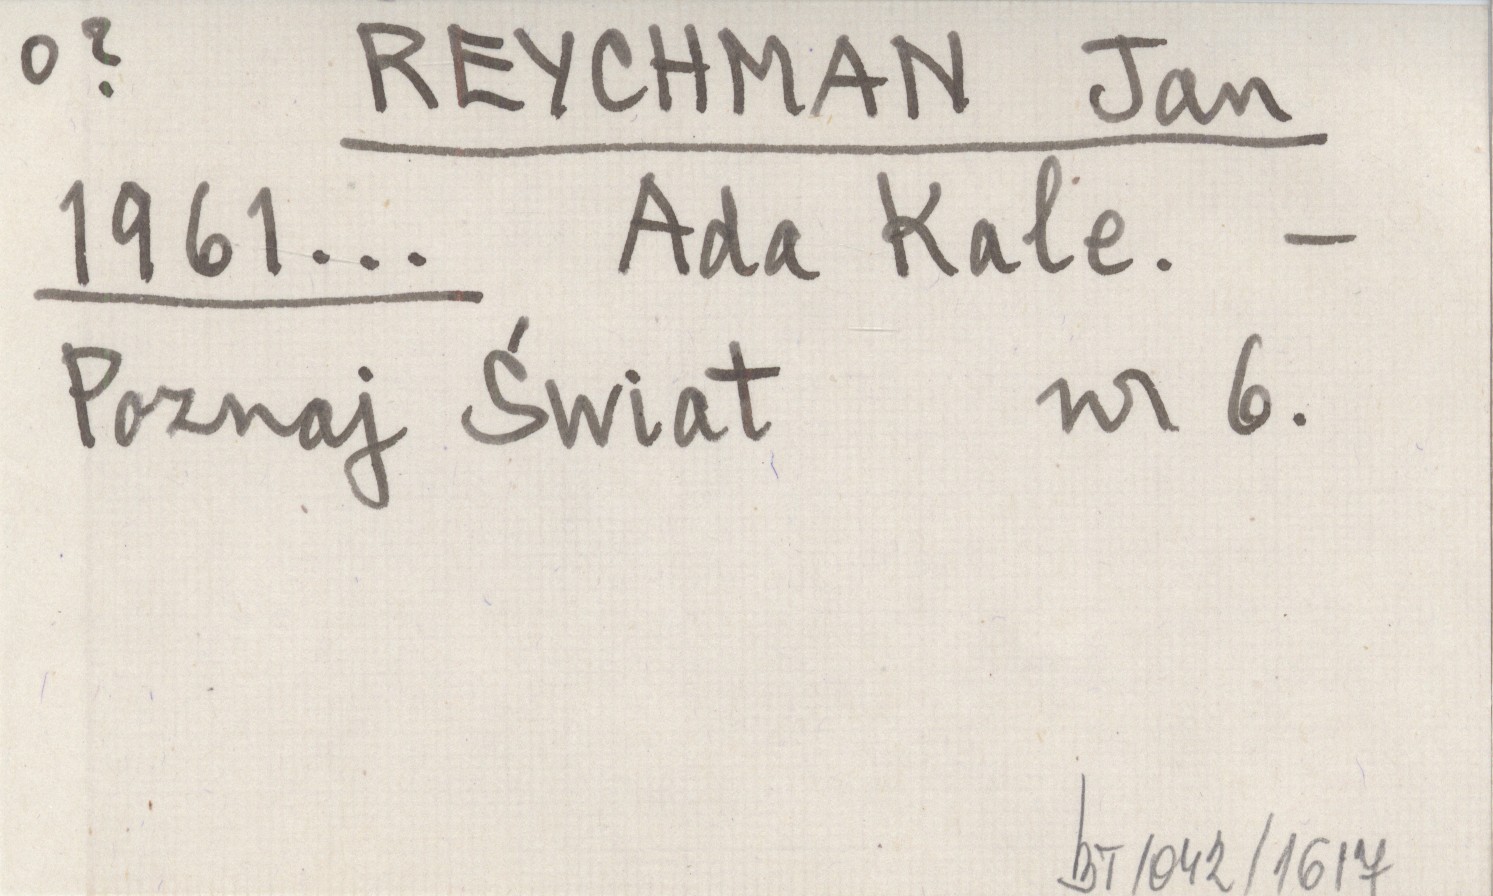 o? REYCHMAN Jan
1961... Ada Kale. —
Poznaj Świat nr 6.
BT/042/1617